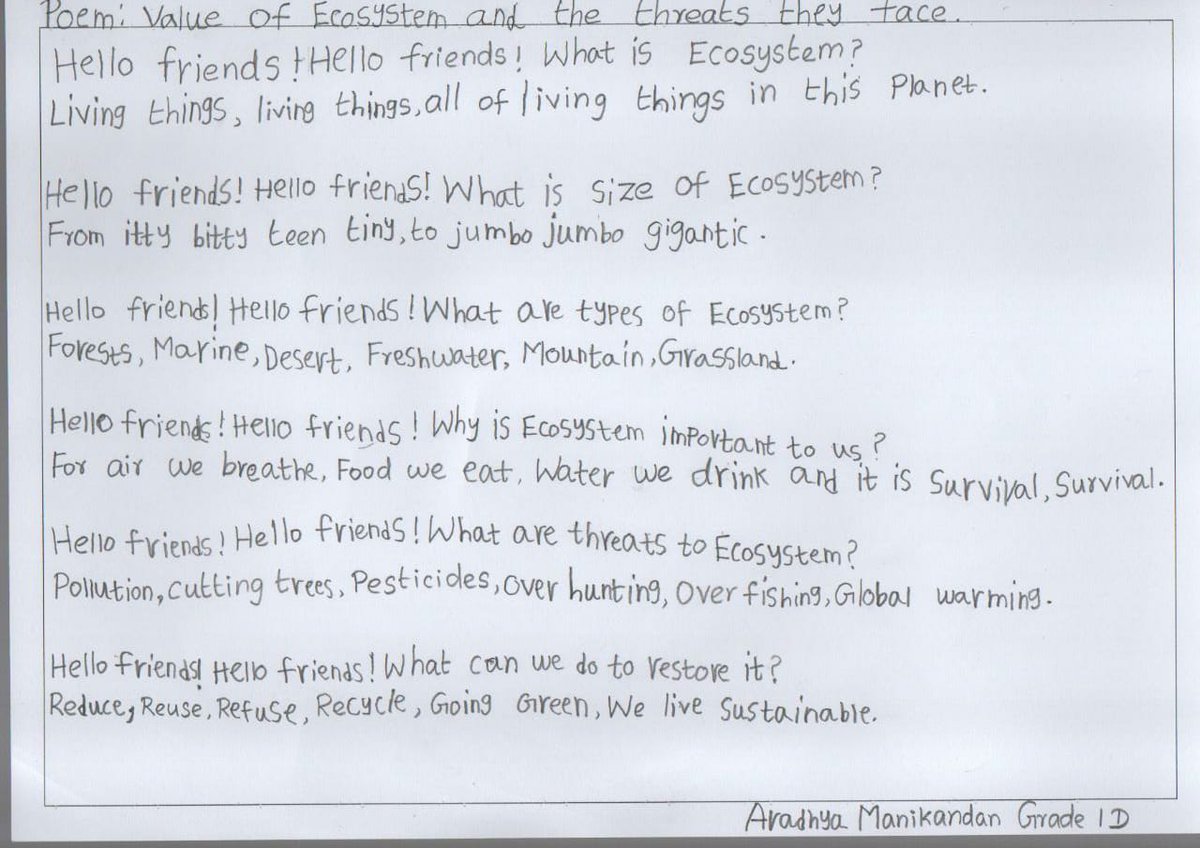 Poem: Value of Ecosystem and the threats they face.
Hello friends! Hello friends! What is Ecosystem?
Living things, living things, all of living things in this Planet.
Hello friends! Hello friends! What is size of Ecosystem?
From itty bitty teen tiny, to jumbo jumbo gigantic.
Hello friend! Hello friends! What are types of Ecosystem?
Forests, Marine, Desert, Freshwater, Mountain, Grassland.
Hello friends! Hello friends! Why is Ecosystem important to us?
For air we breathe, Food we eat, Water we drink and it is Survival, Survival.
Hello friends! Hello friends! What are threats to Ecosystem?
Pollution, cutting trees, Pesticides, over hunting, over fishing, Global warming.
Hello friends! Hello friends! What can we do to restore it?
Reduce, Reuse, Refuse, Recycle, Going Green, We live Sustainable.
Aradhya Manikandan Grade 1 D